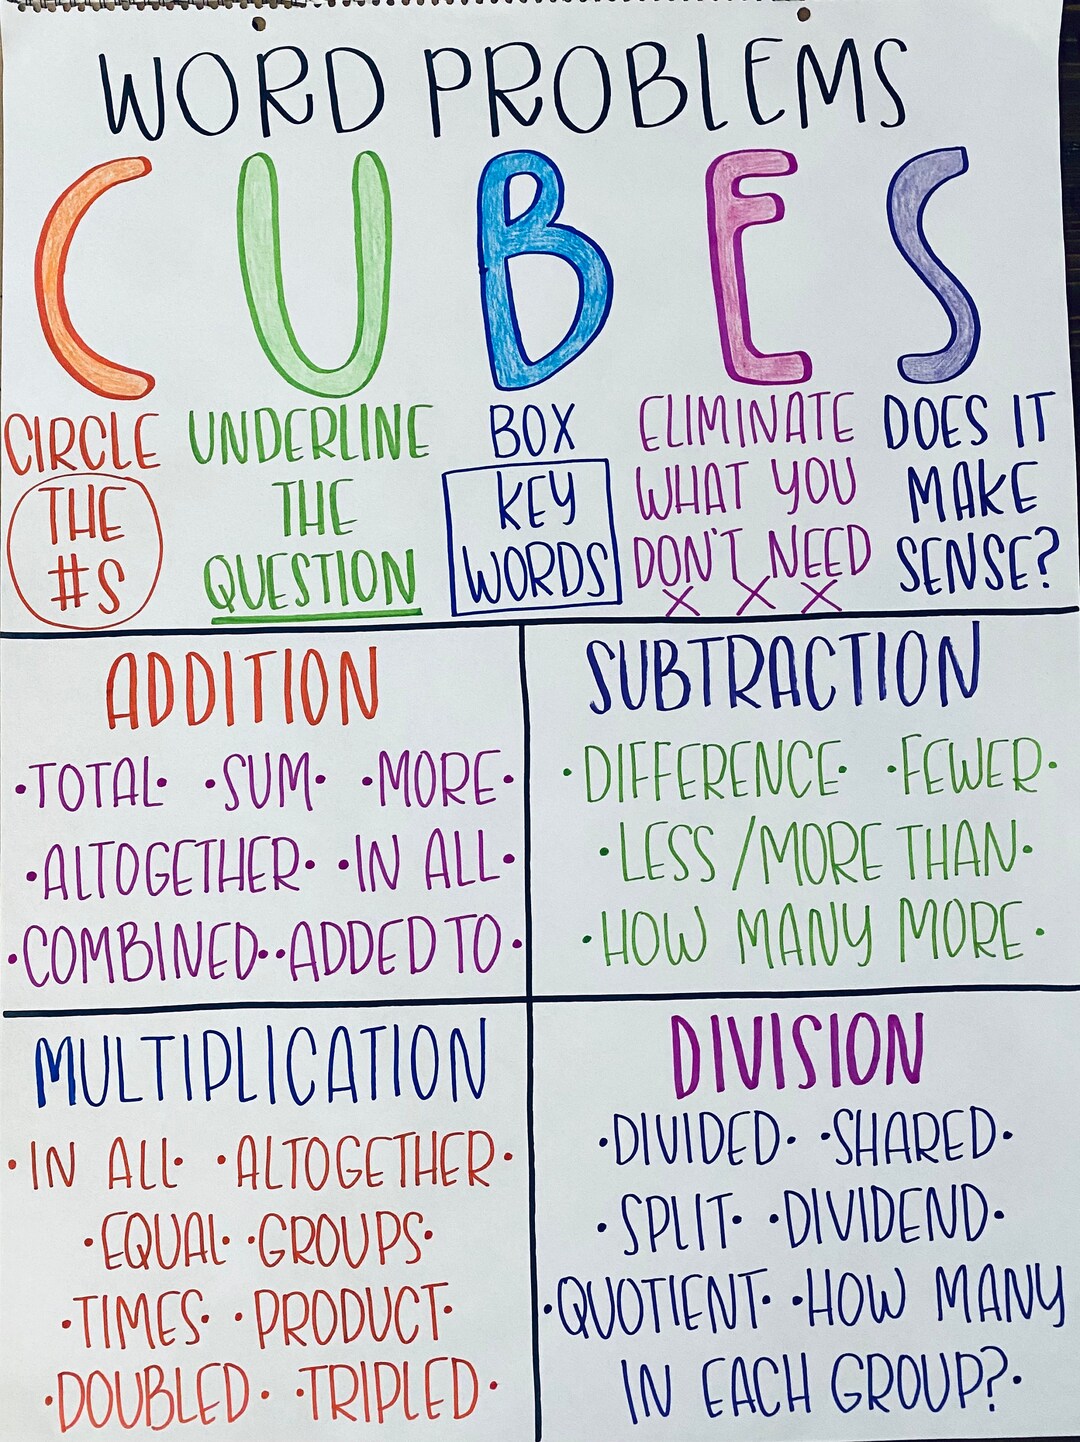 WORD PROBLEMS
CUBES
CIRCLE THE #S
UNDERLINE THE QUESTION
BOX KEY WORDS
ELIMINATE WHAT YOU DON'T NEED
DOES IT MAKE SENSE?
ADDITION
·TOTAL· ·SUM· ·MORE·
·ALTOGETHER· ·IN ALL·
·COMBINED· ·ADDED TO·
SUBTRACTION
·DIFFERENCE· ·FEWER·
·LESS/MORE THAN·
·HOW MANY MORE·
MULTIPLICATION
·IN ALL· ·ALTOGETHER·
·EQUAL· ·GROUPS·
·TIMES· ·PRODUCT·
·DOUBLED· ·TRIPLED·
DIVISION
·DIVIDED· ·SHARED·
·SPLIT· ·DIVIDEND·
·QUOTIENT· ·HOW MANY
IN EACH GROUP?·